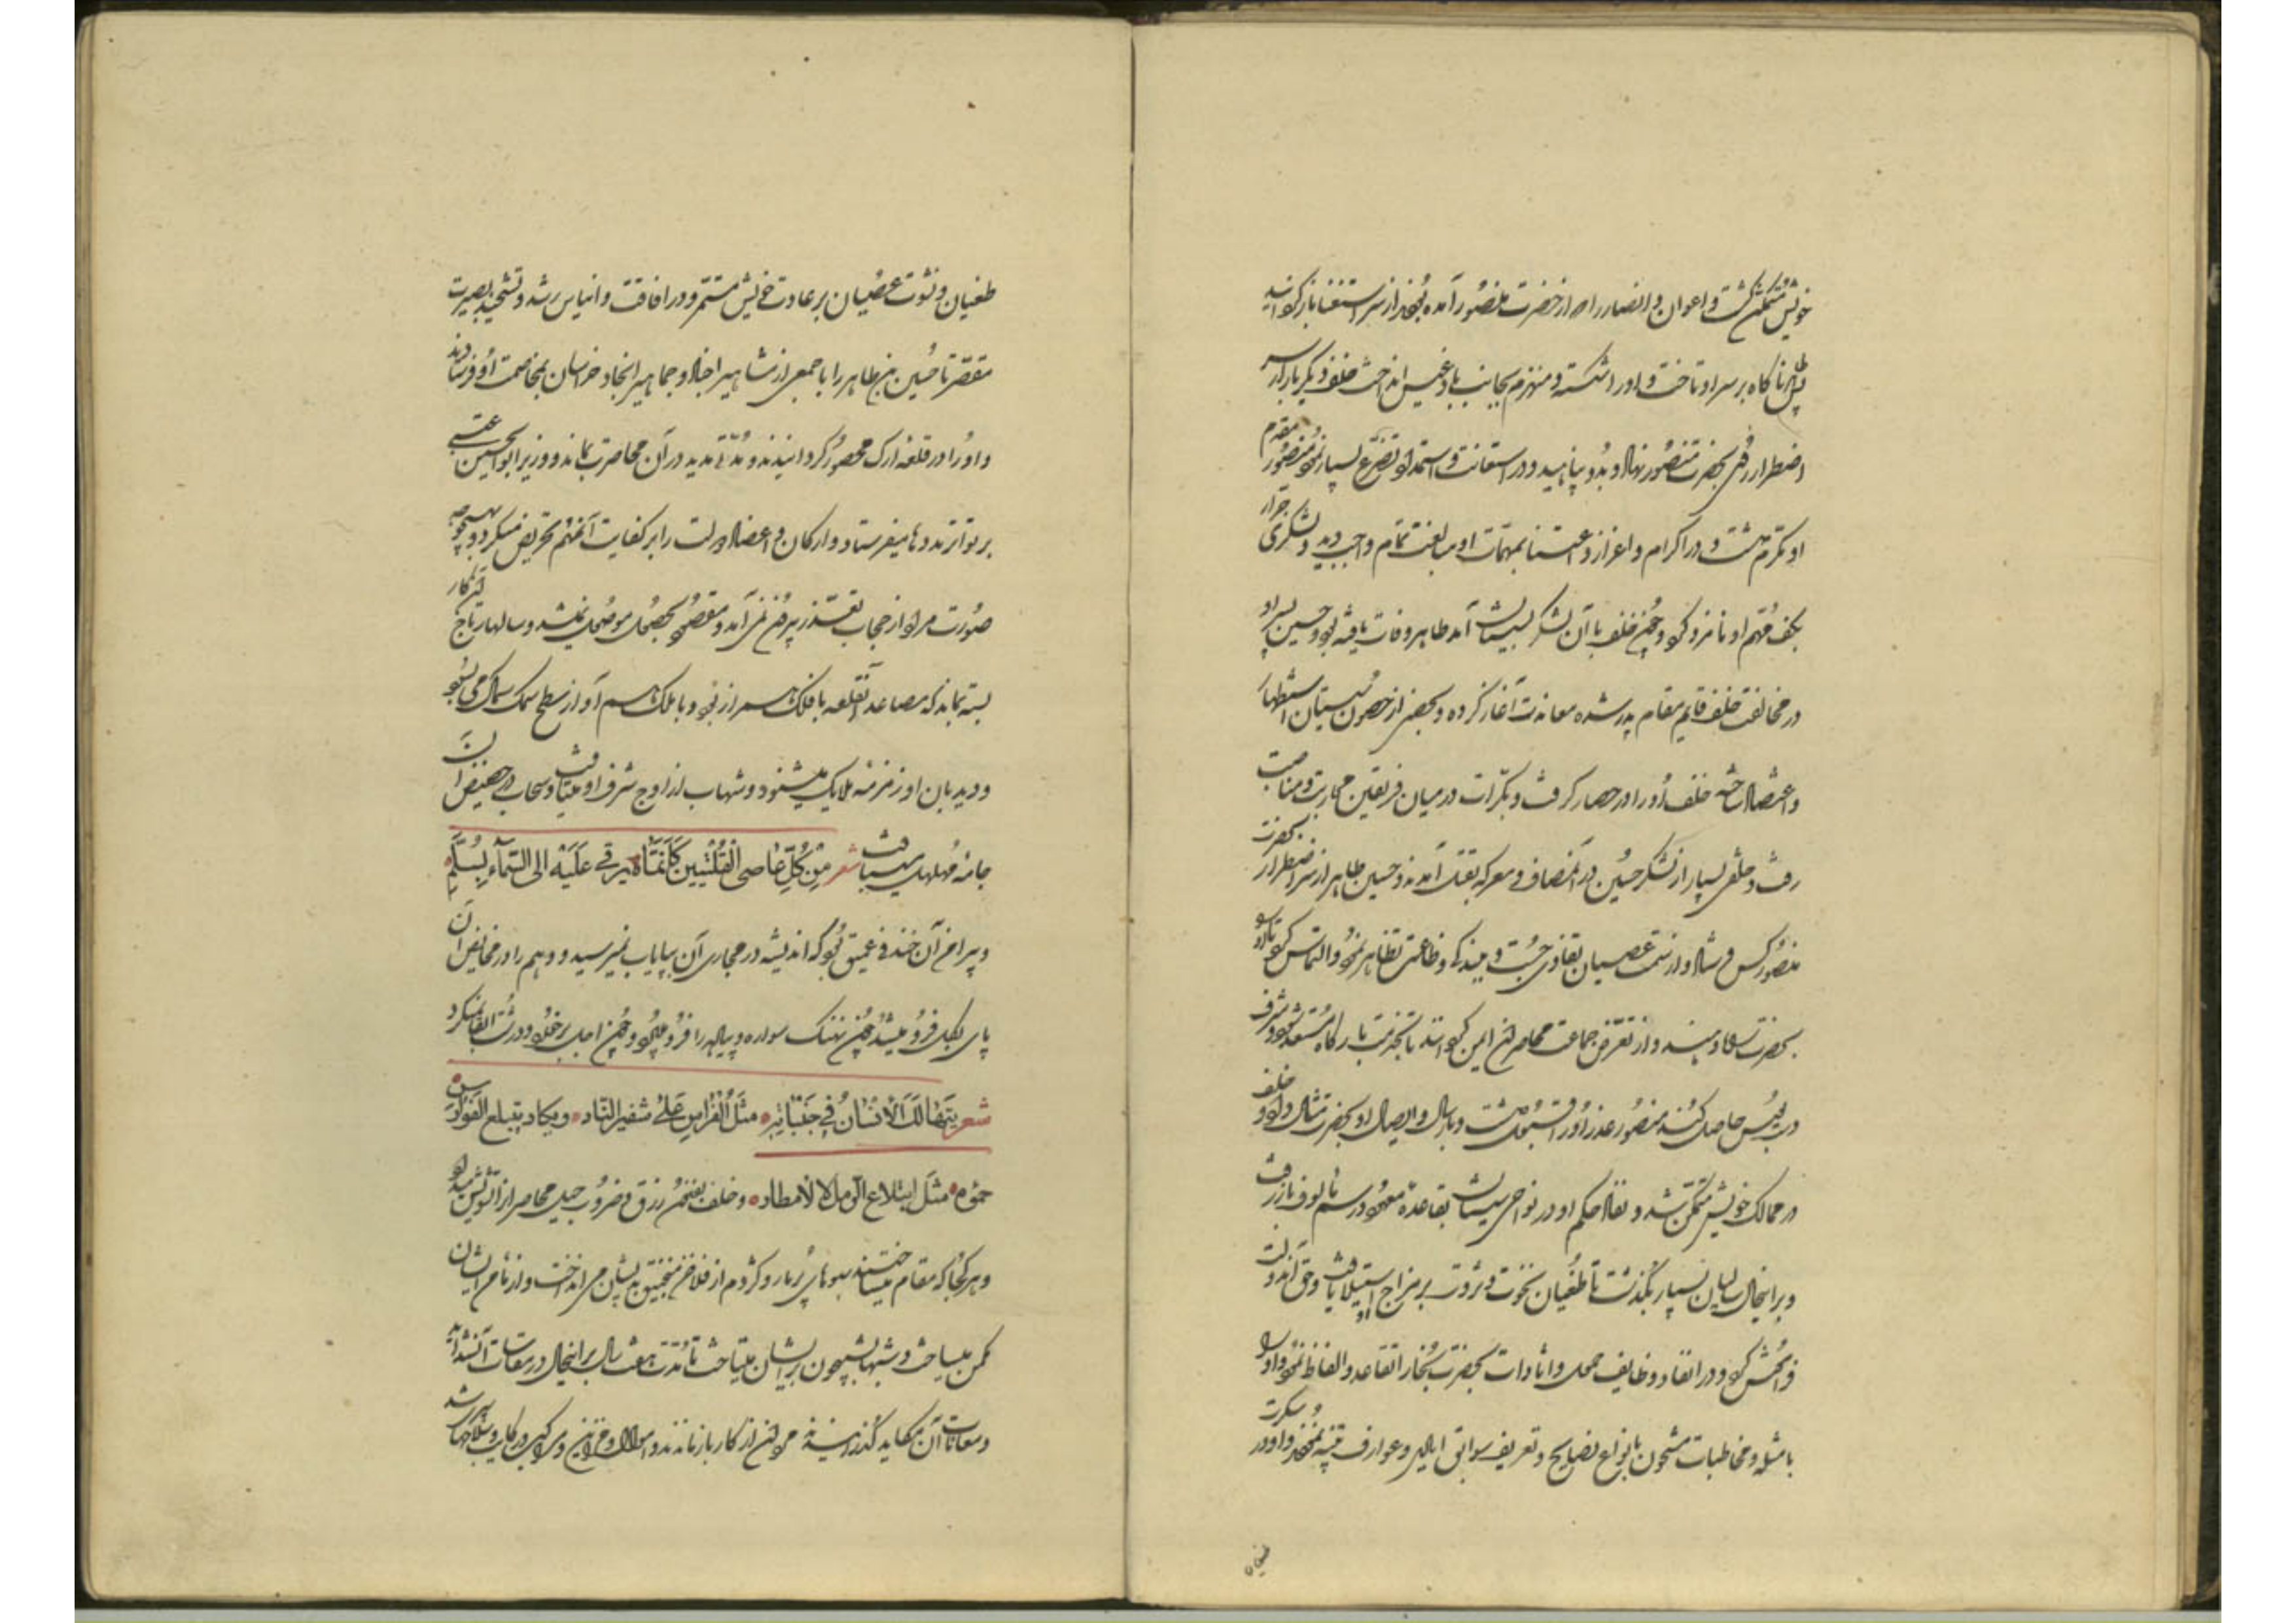 خویش متمکن گشت و اعوان و انصار را که از حضرت منصور آمده بودند از سر استغنا باز گردانید
طاهر ناگاه بر سر او تاخت و او را شکسته و منهزم بجانب بادغیس انداخت خلف دیگر باره از سر
اضطرار روی بحضرت منصور نهاد و بدو پناهید و در استعانت و استمداد تضرع بسیار نمود منصور مقدم
او مکرم داشت و در اکرام و اعزاز و اعتنا بمهمات او مبالغت تمام واجب دید و لشکری جرار
بکف مهم او نامزد کرد و چون خلف با آن لشکر بسیستان آمد طاهر وفات یافته بود و حسین پسر او
در مخالفت خلف قایم مقام پدر شده معاندت آغاز کرده و بحصنی از حصون سیستان استظهار
و اعتضاد جسته خلف او را در حصار گرفت و بکرات در میان فریقین محاربت و مناصبت
رفت و خلقی بسیار از لشکر حسین در آن مصاف و معرکه بقتل آمدند و حسین طاهر از سر اضطرار بحضرت
منصور کس فرستاد و از سمت عصیان تفادی جست و ببندگی و طاعتی تظاهر نمود و التماس کرد تا او را
بحضرت راه دهند و از تعرض جماعت محاصران ایمن گردانند تا بخدمت بارگاه مستعد شود و شرف
دست بوس حاصل کند منصور عذر او را قبول داشت و بارسال و ایصال او بحضرت مثال داد و خلف
در ممالک خویش متمکن شد و نفاذ حکم او در نواحی سیستان بقاعدهٔ معهود و رسم مألوف باز رفت
و بر این حال سالیان بسیار بگذشت تا طغیان نخوت و ثروت بر مزاج او استیلا یافت و حق آن دولت
فراموش کرد و در انفاذ وظایف حمل و اتاوات بحضرت بخارا تقاعد و الفاظ نمود و او را
بامثله و مخاطبات مشحون بانواع نصایح و تعریف سوابق ایادی و عوارف تنبیه نمودند و او در سکرت
طغیان
طغیان و نشوت عصیان بر عادت خویش مستمر و در افاقت و اقتباس رشد و تشحیذ بصیرت
مقصر تا حسین بن طاهر را با جمعی از مشاهیر اجلاد و جماهیر انجاد خراسان بمخاصمت او فرستادند
و او را در قلعه ارک محصور گردانیدند و مدتی مدید در آن محاصرت بماند و وزیر ابوالحسین عتبی
بر تواتر مددها میفرستاد و ارکان و اعضاد دولت را بر کفایت آن مهم تحریض میکرد و بهیچوجه
صورت مراد از حجاب تعذر بیرون نمی آمد و مقصود بحصول موصول نمیشد و سالها رتاج آن کار
بسته بماند که مصاعد آن قلعه با فلک همراز بود و با ملک هم آواز سطح سمک سماک می بسود
و دیدبان او زمزمه ملایک میشنود و شهاب از اوج شرف او میتافت و سحاب در حضیض آن
جامه مهلهل میبافت شعر من کل عاصی القلتین کانما یرقی علیه الی السماء بسلم
و پیرامن آن خندقی عمیق بود که اندیشه در مجاری آن بپایاب نمیرسید و وهم را در مخایض آن
پای بگل فرو میشد و چون نهنگ سواره و پیاده را فرو میبرد و چون اجل بر خرد و درشت ابقا نمیکرد
شعر یتهالک الانسان فی جنباته مثل الفراش علی شفیر النار ویکاد یبتلع الفوارس
حوم مثل ابتلاع الرمل لامطار و خلف بفنون رزق و ضروب حیل محاصران را تشویش میداد
و هر کجا که مقام میساختند سبوهای پر مار و کژدم از فلاخن منجنیق بدیشان می انداخت و از مأمن ایشان
مکمن میساخت و شبها شبیخون بر ایشان میتاخت تا مدت هفت سال بر این حال در مقاسات آن شداید
و معانات آن مکاید گذرانیدند مردان از کار باز ماندند و اموال و خزاین و مراکب و رکایب و سلاحها بسر شد